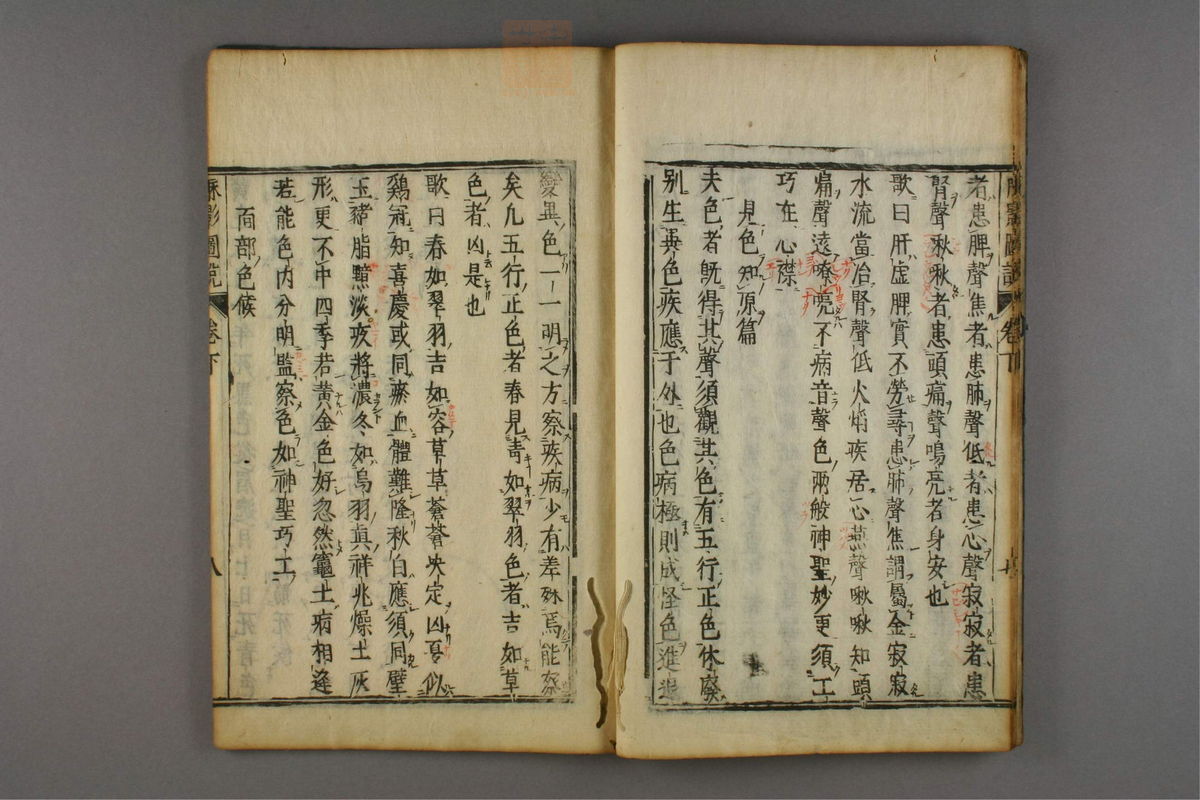 者患脾聲焦者患肺聲低者患心聲寂寂者患
腎聲啾啾者患頭痛聲鳴亮者身安也
歌曰肝虛脾實不勞尋患肺聲焦謂屬金寂寂
水流當治腎聲低火焰疾居心燕聲啾啾知頭
痛聲遠嘹亮不病音聲色兩般神聖妙更須工
巧在心襟
見色知原篇
夫色者既得其聲須觀其色有五行正色休廢
別生異色疾應于外也色病極則成怪色進退
變異色一一明之方察疾病少有差殊焉能察
矣凡五行正色者春見青如翠羽色者吉如草
色者凶是也
歌曰春如翠羽吉如容草草蒼蒼决定凶夏似
鷄冠知喜慶或同瘀血體難隆秋白應須同璧
玉豬脂黲淡疾將濃冬如烏羽真祥兆燥土灰
形更不中四季若黃金色好忽然竈土病相逢
若能色內分明監察色如神聖巧工
面部色候
圖說
卷下
八
卷下